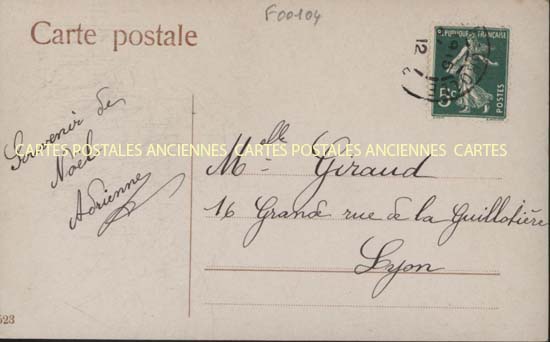 F00104
Carte postale
RÉPUBLIQUE FRANÇAISE
5c
POSTES
12
Souvenir de
Noël
Adrienne
CARTES POSTALES ANCIENNES CARTES POSTALES ANCIENNES CARTES
Melle Giraud
16 Grande rue de la Guillotière
Lyon
523